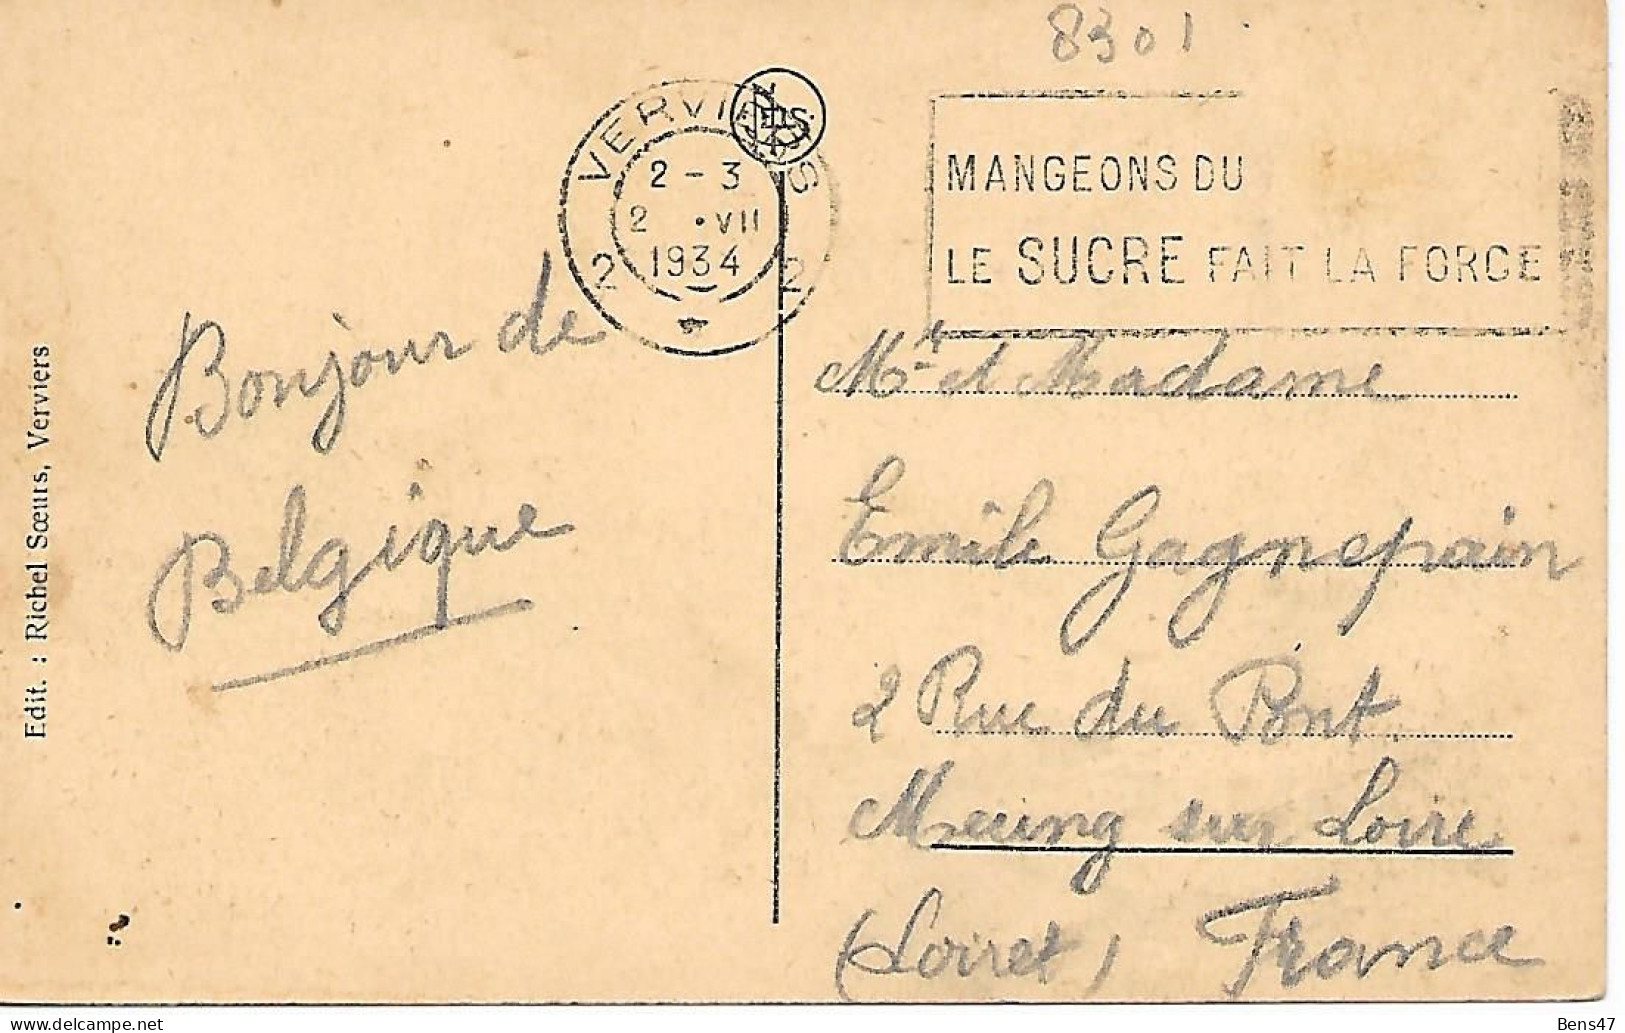 8301
VERVIERS
2 - 3
2 • VII
1934
2 2
MANGEONS DU
LE SUCRE FAIT LA FORCE
Bonjour de
Belgique
Mr et Madame
Emile Gagnepain
2 Rue du Pont
Meung sur Loire
(Loiret) France
Edit. : Richel Sœurs, Verviers
Bens47